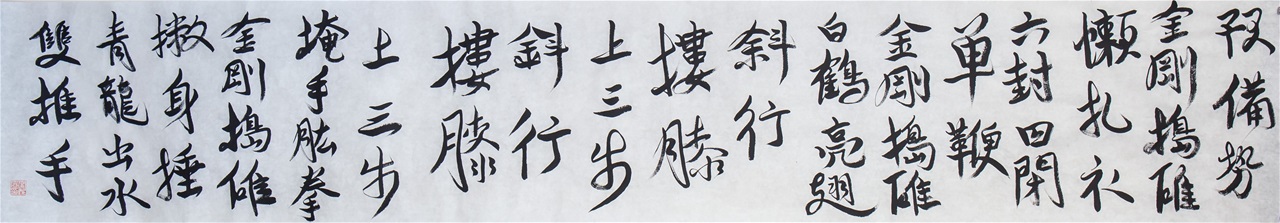 预備势
金剛搗碓
懶扎衣
六封四閉
单鞭
金剛搗碓
白鶴亮翅
斜行
摟膝
上三步
斜行
摟膝
上三步
掩手肱拳
金剛搗碓
撇身捶
青龍出水
雙推手